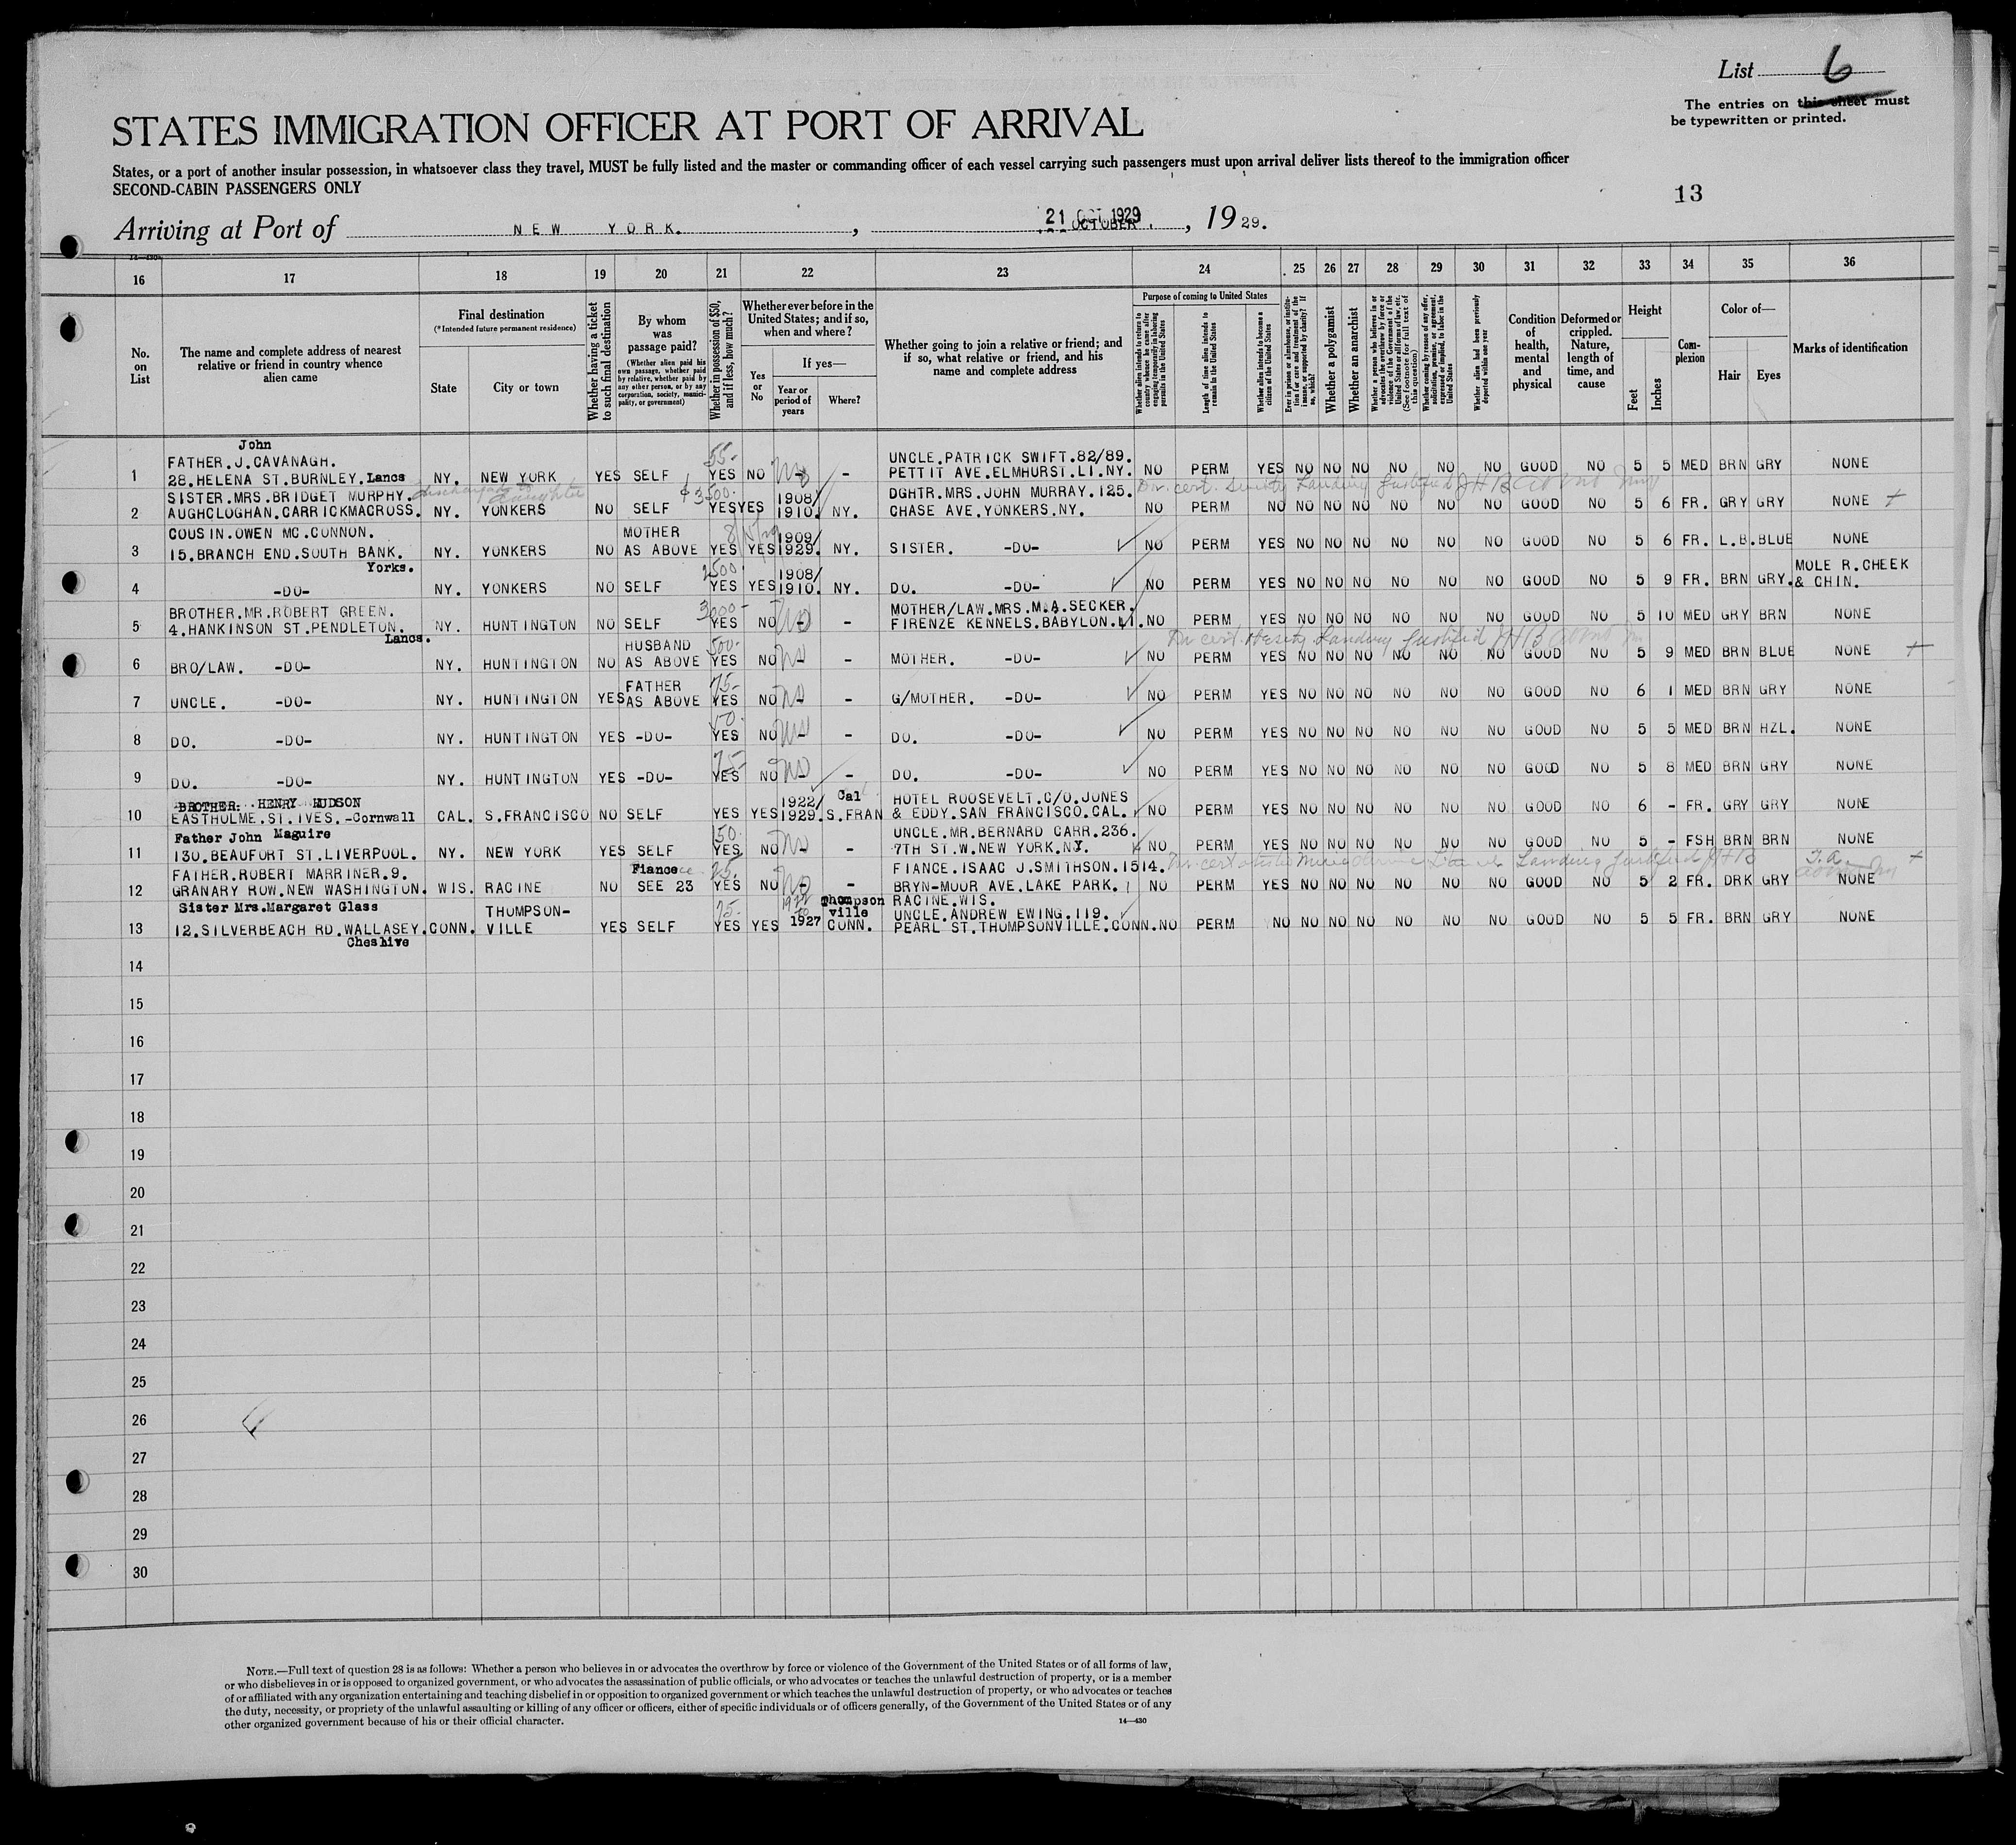 List 6
The entries on this sheet must
be typewritten or printed.
STATES IMMIGRATION OFFICER AT PORT OF ARRIVAL
States, or a port of another insular possession, in whatsoever class they travel, MUST be fully listed and the master or commanding officer of each vessel carrying such passengers must upon arrival deliver lists thereof to the immigration officer
SECOND-CABIN PASSENGERS ONLY
13
Arriving at Port of NEW YORK. , 21 OCTOBER. , 1929.
21 OCT 1929
14—430
16 17 18 19 20 21 22 23 24 25 26 27 28 29 30 31 32 33 34 35 36
No. on List
The name and complete address of nearest relative or friend in country whence alien came
Final destination
(*Intended future permanent residence)
State
City or town
Whether having a ticket to such final destination
By whom was passage paid?
(Whether alien paid his own passage, whether paid by relative, whether paid by any other person, or by any corporation, society, municipality, or government)
Whether in possession of $50, and if less, how much?
Whether ever before in the United States; and if so, when and where?
Yes or No
If yes—
Year or period of years
Where?
Whether going to join a relative or friend; and if so, what relative or friend, and his name and complete address
Purpose of coming to United States
Whether alien intends to return to country whence he came after engaging temporarily in laboring pursuits in the United States
Length of time alien intends to remain in the United States
Whether alien intends to become a citizen of the United States
Ever in prison or almshouse, or institution for care and treatment of the insane, or supported by charity? If so, which?
Whether a polygamist
Whether an anarchist
Whether a person who believes in or advocates the overthrow by force or violence of the Government of the United States or all forms of law, etc. (See footnote for full text of this question)
Whether coming by reason of any offer, solicitation, promise, or agreement, expressed or implied, to labor in the United States
Whether alien had been previously deported within one year
Condition of health, mental and physical
Deformed or crippled. Nature, length of time, and cause
Height
Feet
Inches
Complexion
Color of—
Hair
Eyes
Marks of identification
John
FATHER.J.CAVANAGH. 55- UNCLE.PATRICK SWIFT.82/89.
1 28.HELENA ST.BURNLEY.Lancs NY. NEW YORK YES SELF YES NO No - PETTIT AVE.ELMHURST.LI.NY. NO PERM YES NO NO NO NO NO NO GOOD NO 5 5 MED BRN GRY NONE
SISTER.MRS.BRIDGET MURPHY. $3500. 1908/ DGHTR.MRS.JOHN MURRAY.125.
2 AUGHCLOGHAN.CARRICKMACROSS. NY. YONKERS NO SELF YES YES 1910. NY. CHASE AVE.YONKERS.NY. NO PERM NO NO NO NO NO NO NO GOOD NO 5 6 FR. GRY GRY NONE
COUSIN.OWEN MC.CONNON. MOTHER 1909/
3 15.BRANCH END.SOUTH BANK. NY. YONKERS NO AS ABOVE YES YES 1929. NY. SISTER. -DO- NO PERM YES NO NO NO NO NO NO GOOD NO 5 6 FR. L.B. BLUE NONE
Yorks. 2500. 1908/ MOLE R.CHEEK
4 -DO- NY. YONKERS NO SELF YES YES 1910. NY. DO. -DO- NO PERM YES NO NO NO NO NO NO GOOD NO 5 9 FR. BRN GRY. & CHIN.
BROTHER.MR.ROBERT GREEN. 3000- MOTHER/LAW.MRS.M.A.SECKER.
5 4.HANKINSON ST.PENDLETON. NY. HUNTINGTON NO SELF YES NO No - FIRENZE KENNELS.BABYLON.LI. NO PERM YES NO NO NO NO NO NO GOOD NO 5 10 MED GRY BRN NONE
Lancs. HUSBAND 500-
6 BRO/LAW. -DO- NY. HUNTINGTON NO AS ABOVE YES NO No - MOTHER. -DO- NO PERM YES NO NO NO NO NO NO GOOD NO 5 9 MED BRN BLUE NONE
FATHER 75-
7 UNCLE. -DO- NY. HUNTINGTON YES AS ABOVE YES NO No - G/MOTHER. -DO- NO PERM YES NO NO NO NO NO NO GOOD NO 6 1 MED BRN GRY NONE
50.
8 DO. -DO- NY. HUNTINGTON YES -DO- YES NO No - DO. -DO- NO PERM YES NO NO NO NO NO NO GOOD NO 5 5 MED BRN HZL. NONE
75-
9 DO. -DO- NY. HUNTINGTON YES -DO- YES NO No - DO. -DO- NO PERM YES NO NO NO NO NO NO GOOD NO 5 8 MED BRN GRY NONE
BROTHER: HENRY HUDSON 1922/ Cal HOTEL ROOSEVELT.C/O.JONES
10 EASTHOLME.ST.IVES.-Cornwall CAL. S.FRANCISCO NO SELF YES YES 1929. S.FRAN & EDDY.SAN FRANCISCO.CAL. NO PERM YES NO NO NO NO NO NO GOOD NO 6 - FR. GRY GRY NONE
Father John Maguire 50. UNCLE.MR.BERNARD CARR.236.
11 130.BEAUFORT ST.LIVERPOOL. NY. NEW YORK YES SELF YES NO No - 7TH ST.W.NEW YORK.NY. NO PERM YES NO NO NO NO NO NO GOOD NO 5 - FSH BRN BRN NONE
FATHER.ROBERT MARRINER.9. Fiance 25. FIANCE.ISAAC J.SMITHSON.1514.
12 GRANARY ROW.NEW WASHINGTON. WIS. RACINE NO SEE 23 YES NO No - BRYN-MUUR AVE.LAKE PARK. NO PERM YES NO NO NO NO NO NO GOOD NO 5 2 FR. DRK GRY NONE
Sister Mrs.Margaret Glass THOMPSON- 75- Thompson RACINE.WIS.
ville UNCLE.ANDREW EWING.119.
13 12.SILVERBEACH RD.WALLASEY. CONN. VILLE YES SELF YES YES 1927 CONN. PEARL ST.THOMPSONVILLE.CONN. NO PERM NO NO NO NO NO NO NO GOOD NO 5 5 FR. BRN GRY NONE
Cheshive
14
15
16
17
18
19
20
21
22
23
24
25
26
27
28
29
30
NOTE.—Full text of question 28 is as follows: Whether a person who believes in or advocates the overthrow by force or violence of the Government of the United States or of all forms of law,
or who disbelieves in or is opposed to organized government, or who advocates the assassination of public officials, or who advocates or teaches the unlawful destruction of property, or is a member
of or affiliated with any organization entertaining and teaching disbelief in or opposition to organized government or which teaches the unlawful destruction of property, or who advocates or teaches
the duty, necessity, or propriety of the unlawful assaulting or killing of any officer or officers, either of specific individuals or of officers generally, of the Government of the United States or of any
other organized government because of his or their official character.
14—430